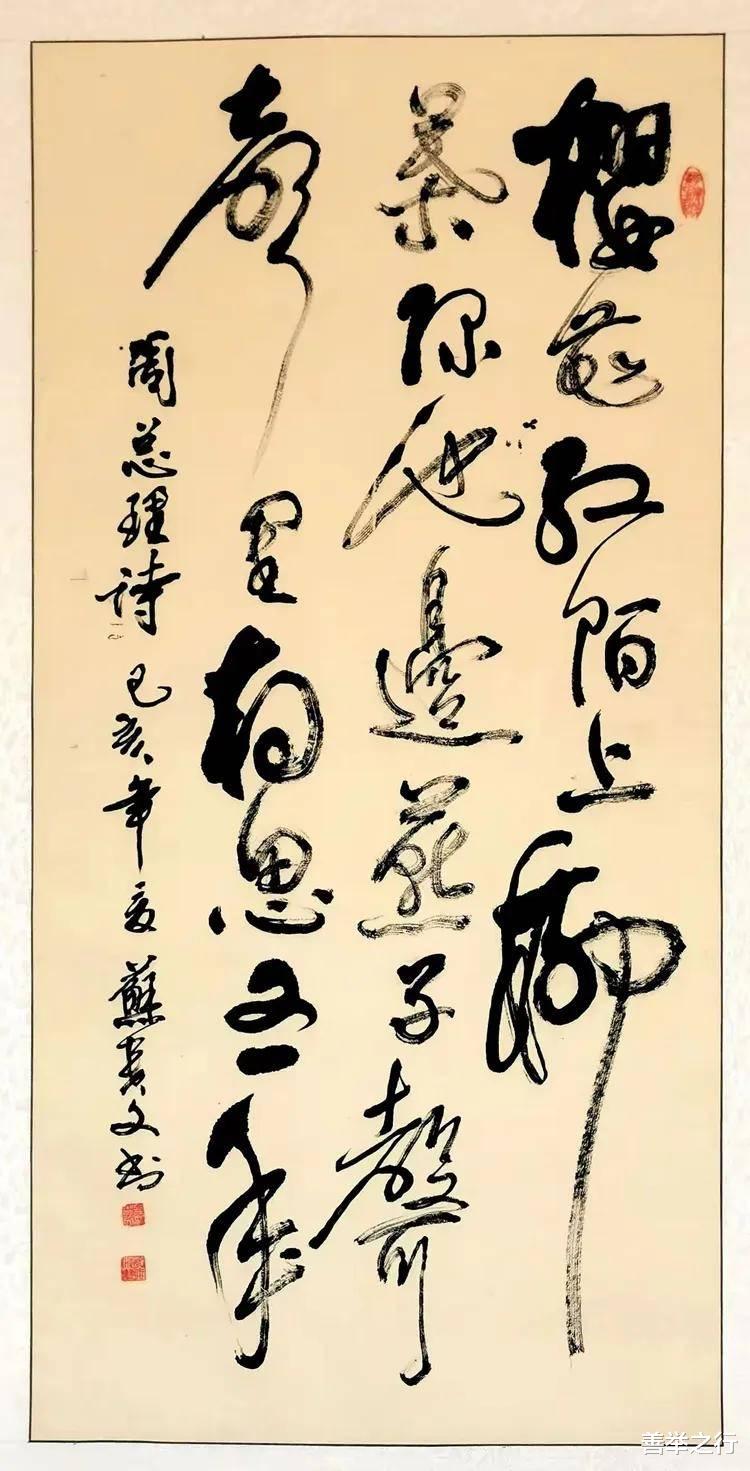 櫻花红陌上柳
葉绿池邊燕子聲
声里相思又一年
周总理诗 己亥年夏 蘇文书
善举之行